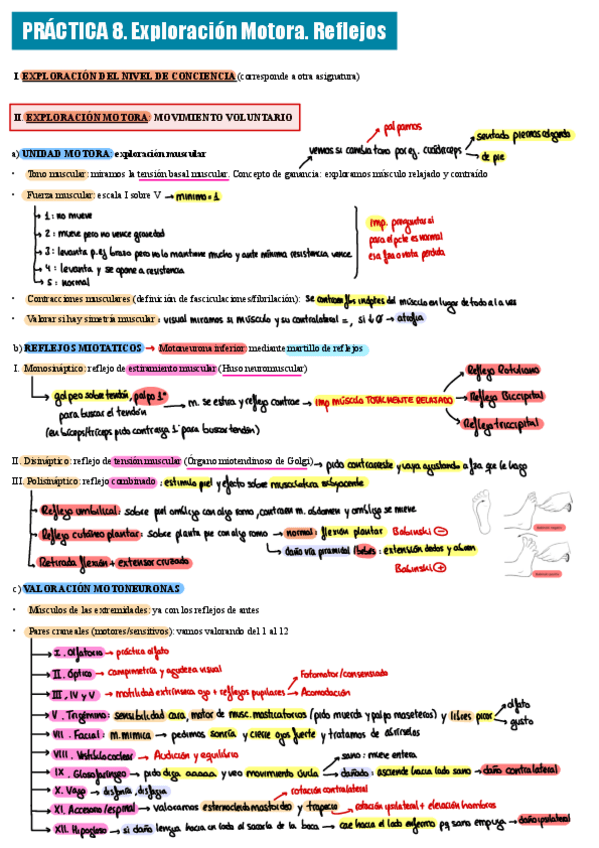 PRÁCTICA 8. Exploración Motora. Reflejos
I. EXPLORACIÓN DEL NIVEL DE CONCIENCIA (corresponde a otra asignatura)
II. EXPLORACIÓN MOTORA: MOVIMIENTO VOLUNTARIO
palpamos
vemos si cambia tono por ej. cuádriceps
sentado piernas colgando
de pie
a) UNIDAD MOTORA: exploración muscular
· Tono muscular: miramos la tensión basal muscular. Concepto de ganancia: exploramos músculo relajado y contraído
· Fuerza muscular: escala I sobre V → mínimo = 1
1: no mueve
2: mueve pero no vence gravedad
3: levanta p.ej brazo pero no lo mantiene mucho y ante mínima resistencia vence
4: levanta y se opone a resistencia
5: normal
imp. preguntar si
para el pcte es normal
esa fza o nota pérdida
· Contracciones musculares (definición de fasciculaciones/fibrilación):
del músculo en lugar de todo a la vez
· Valorar si hay simetría muscular: visual miramos si músculo y su contralateral =, si ↓ Ø → atrofia
b) REFLEJOS MIOTATICOS → Motoneurona inferior mediante martillo de reflejos
I. Monosináptico: reflejo de estiramiento muscular (Huso neuromuscular)
golpeo sobre tendón, palpo 1º
para buscar el tendón
(en bíceps/tríceps pido contraiga 1º para buscar tendón)
→ m. se estira y reflejo contrae → imp MÚSCULO TOTALMENTE RELAJADO
Reflejo Rotuliano
Reflejo Biccipital
Reflejo triccipital
II. Disináptico: reflejo de tensión muscular (Órgano miotendinoso de Golgi) → pido contrarreste y vaya ajustando a fza que le hago
III. Polisináptico: reflejo combinado: estimulo piel y efecto sobre musculatura subyacente
Reflejo umbilical: sobre piel ombligo con algo romo, contraen m. abdomen y ombligo se mueve
Reflejo cutáneo plantar: sobre planta pie con algo romo → normal: flexión plantar Babinski ⊖
daño vía piramidal/bebés: extensión dedos y abren
Babinski ⊕
Retirada flexión + extensor cruzado
c) VALORACIÓN MOTONEURONAS
· Músculos de las extremidades: ya con los reflejos de antes
· Pares craneales (motores/sensitivos): vamos valorando del 1 al 12
I. Olfatorio → práctica olfato
II. Óptico → campimetría y agudeza visual
III, IV y V → motilidad extrínseca ojo + reflejos pupilares → Fotomotor/consensuado
Acomodación
V. Trigémino: sensibilidad cara, motor de musc. masticatorios (pido muerda y palpo maseteros) y libres picor
olfato
gusto
VII. Facial: m. mímica → pedimos sonría y cierre ojos fuerte y tratamos de abrirlos
VIII. Vestibulococlear → Audición y equilibrio
IX. Glosofaríngeo → pido diga aaaaa y veo movimiento úvula
sano: mueve entera
dañado: asciende hacia lado sano → daño contralateral
X. Vago → disfonía, disfagia
XI. Accesorio/espinal → valoramos esternocleidomastoideo y trapecio
rotación contralateral
rotación ipsilateral + elevación hombros
XII. Hipogloso → si daño lengua hacia un lado al sacarla de la boca → cae hacia el lado enfermo pq sano empuja → daño ipsilateral